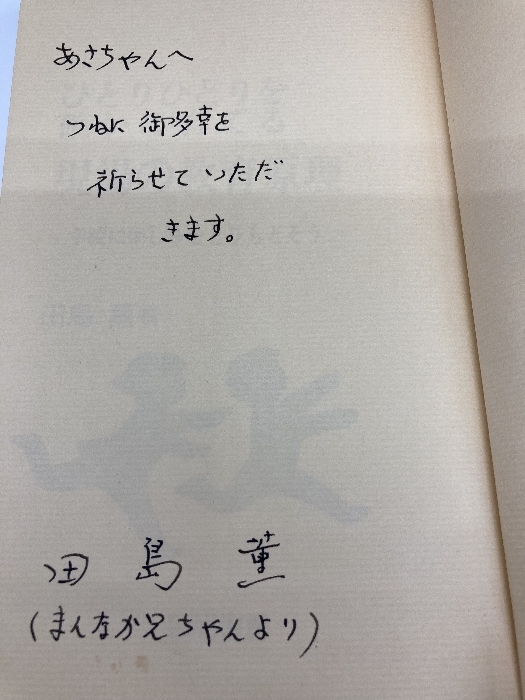 あさちゃんへ
つねに 御多幸を
祈らせていただ
きます。
田島 薫
(まんなか兄ちゃんより)